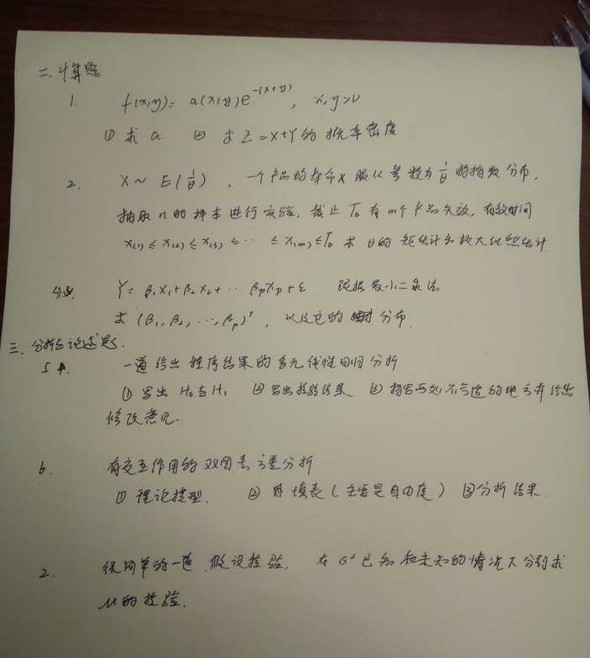 二. 计算题
1. f(x,y) = a(x+y)e^{-(x+y)}, x,y>0
① 求 a ② 求 Z=X+Y 的概率密度
2. X~E(1/θ), 一个产品的寿命X服从参数为1/θ的指数分布,
抽取n的样本进行实验, 截止T₀有m个产品失效, 有效时间
x(1) ≤ x(2) ≤ x(3) ≤ … ≤ x(m) ≤ T₀ 求θ的矩估计和极大似然估计
Y = β₁X₁+β₂X₂+… βpXp+ε 根据最小二乘法
求 (β₁, β₂, …, βp)', 以及它的分布.
三. 分析与论述题.
一道给出程序结果的多元线性回归分析
① 写出 H₀与H₁ ② 写出检验结果 ③ 指出两处不合适的地方并给出
修改意见.
6. 有交互作用的双因素方差分析
① 理论模型. ② 填表(主要是自由度) ③分析结果.
2. 很简单的一道 假设检验. 在σ²已知和未知的情况下分别求
μ的检验.